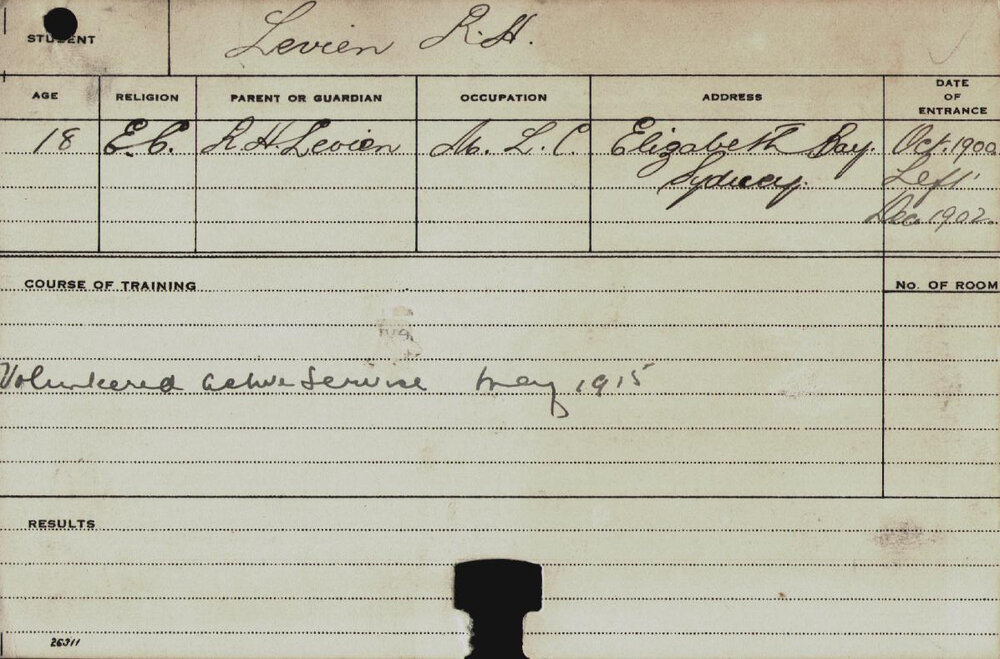 STUDENT Levien R.H.
AGE RELIGION PARENT OR GUARDIAN OCCUPATION ADDRESS DATE OF ENTRANCE
18 E.C. R H Levien M. L. C. Elizabeth Bay. Oct. 1900
Sydney. Left
Dec 1902.
COURSE OF TRAINING No. OF ROOM
Volunteered active Service May 1915
RESULTS
26311